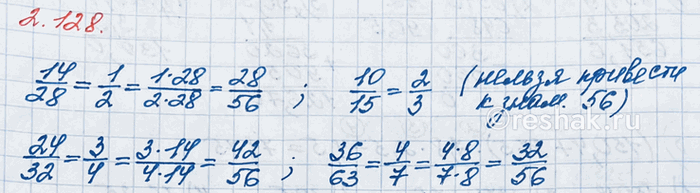 2.128.
14/28 = 1/2 = 1·28/2·28 = 28/56 ; 10/15 = 2/3 (нельзя привести
к знам. 56)
©reshak.ru
24/32 = 3/4 = 3·14/4·14 = 42/56 ; 36/63 = 4/7 = 4·8/7·8 = 32/56